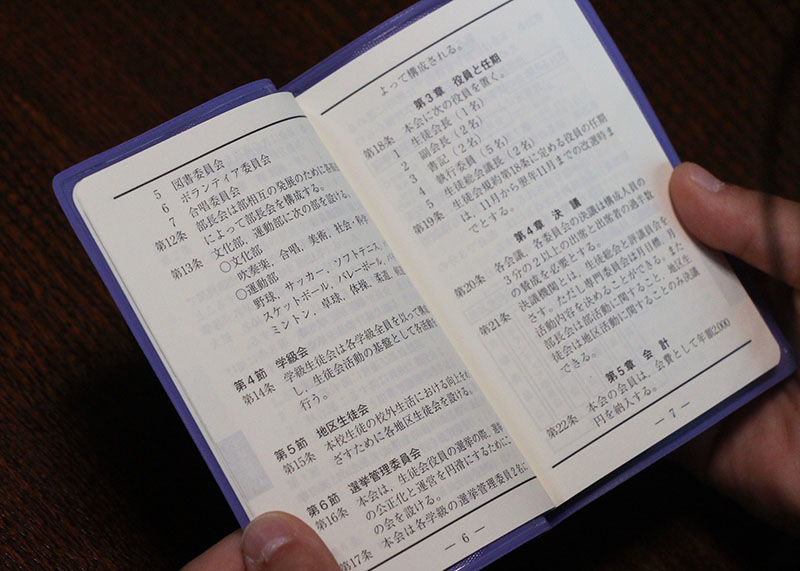 5 図書委員会
6 ボランティア委員会
7 合唱委員会
第12条 部長会は部相互の発展のために各部
によって部長会を構成する。
第13条 文化部、運動部に次の部を設ける。
○文化部
吹奏楽、合唱、美術、社会・科学
○運動部
野球、サッカー、ソフトテニス、
スケットボール、バレーボール、
ミントン、卓球、体操、柔道、
第4節 学級会
第14条 学級生徒会は各学級全員を以って
し、生徒会活動の基盤として各
行う。
第5節 地区生徒会
第15条 本校生徒の校外生活における向上を
ざすために各地区生徒会を設ける。
第6節 選挙管理委員会
第16条 本会は、生徒会役員の選挙の際、
の公正化と運営を円滑にするために
の会を設ける。
第17条 本会は各学級の選挙管理委員2名
― 6 ―
よって構成される。
第3章 役員と任期
第18条 本会に次の役員を置く。
1 生徒会長(1名)
2 副会長(2名)
3 書記(2名)
4 執行委員(5名)
5 生徒総会議長(2名)
第19条 生徒会規約第18条に定める役員の任期
は、11月から翌年11月までの改選時ま
でとする。
第4章 決議
第20条 各会議、各委員会の決議は構成人員の
3分の2以上の出席と出席者の過半数
の賛成を必要とする。
第21条 決議機関とは、生徒総会と評議員会を
さす。ただし専門委員会は月目標・月
活動内容を決めることができる。また
部長会は部活動に関すること、地区生
徒会は地区活動に関することのみ決議
できる。
第5章 会計
第22条 本会の会員は、会費として年額2000
円を納入する。
― 7 ―